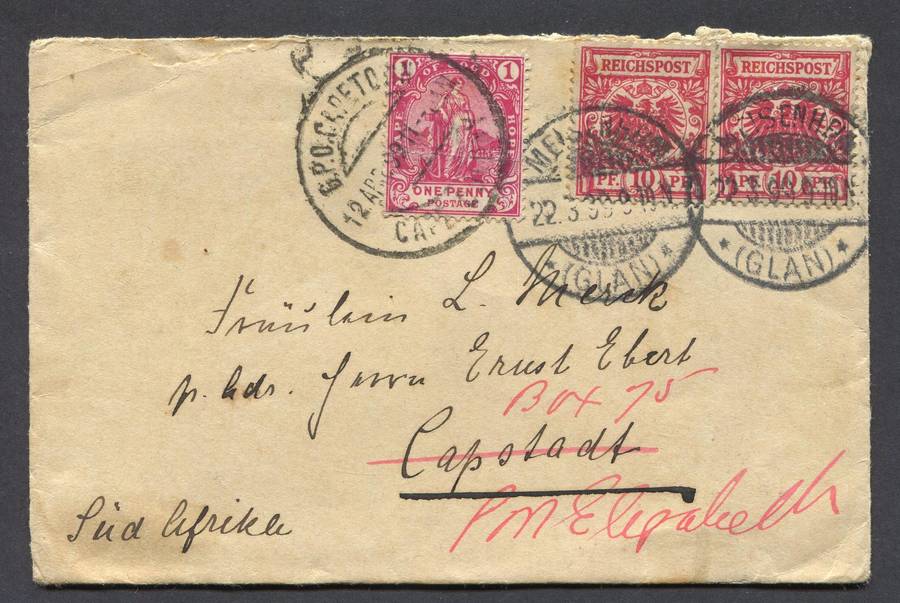 1 OF GOOD 1
CAPE HOPE
ONE PENNY
POSTAGE
G.P.O. CAPETOWN
12 APR
CAPE
REICHSPOST
PF. 10 PF.
REICHSPOST
PF. 10 PF.
MEISENHEIM
22.3.99 9.10.V.
* (GLAN) *
MEISENHEIM
22.3.99 9.10.V.
* (GLAN) *
Fräulein L. Merck
p. Adr. Herrn Ernst Ebert
Box 75
Capstadt
Port Elizabeth
Süd Afrika